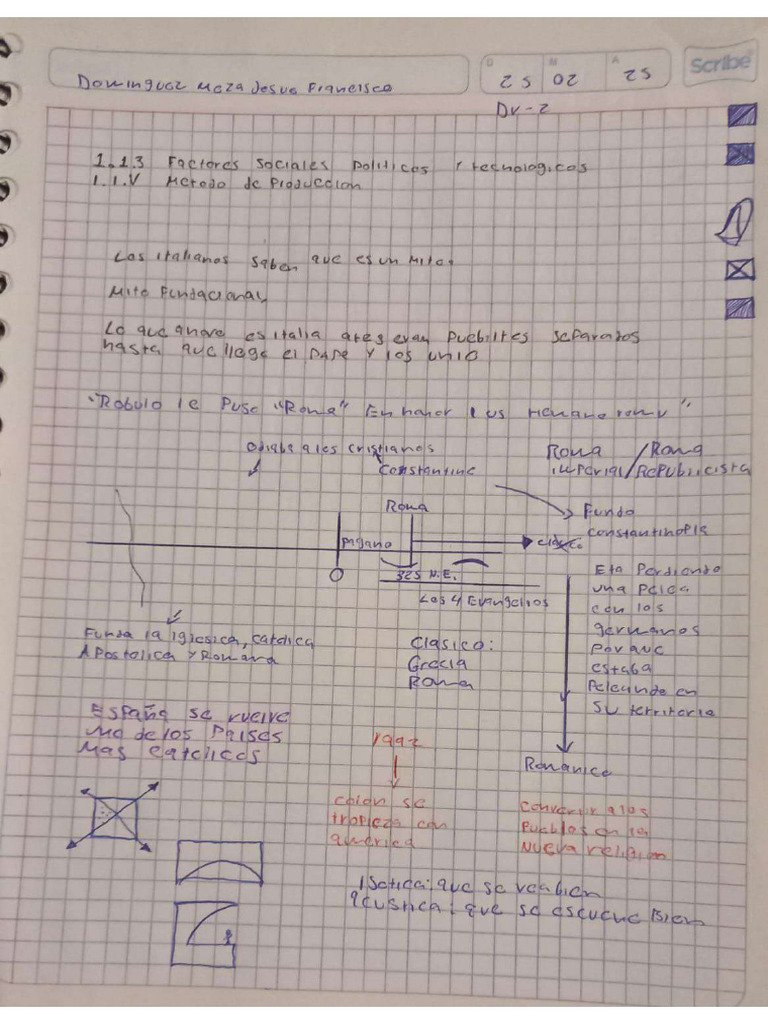 Dominguez Meza Jesus Francisco
D M A
25 02 25
Scribe
DV-2
1.1.3 Factores sociales politicos y tecnologicos
1.1.V Metodo de Produccion
Los italianos saben que es un Mito.
Mito Fundacional
Lo que ahora es italia ates eran Pueblites separados
hasta que llego el PAPA y los unio
"Robulo le Puso "Roma" En honor
Odiaba a los cristianos
Constantine
Roma /Roma
imperial/Republicista
Roma
Fundo
constantinopla
Pagano
0
325 N.E.
Los 4 Evangelios
Eta Perdiendo
una Pelea
con los
germanos
Por que
estaba
Peleando en
su territorio
Funda la iglesica, catolica
Apostolica y Romana
Clasico:
Grecia
Roma
España se vuelve
de los Paises
Mas catolicos
1992
Romanico
colon se
tropieza con
america
Convertir a los
Pueblos en la
Nueva religion
que se vea bien
acustica: que se escuche Bien